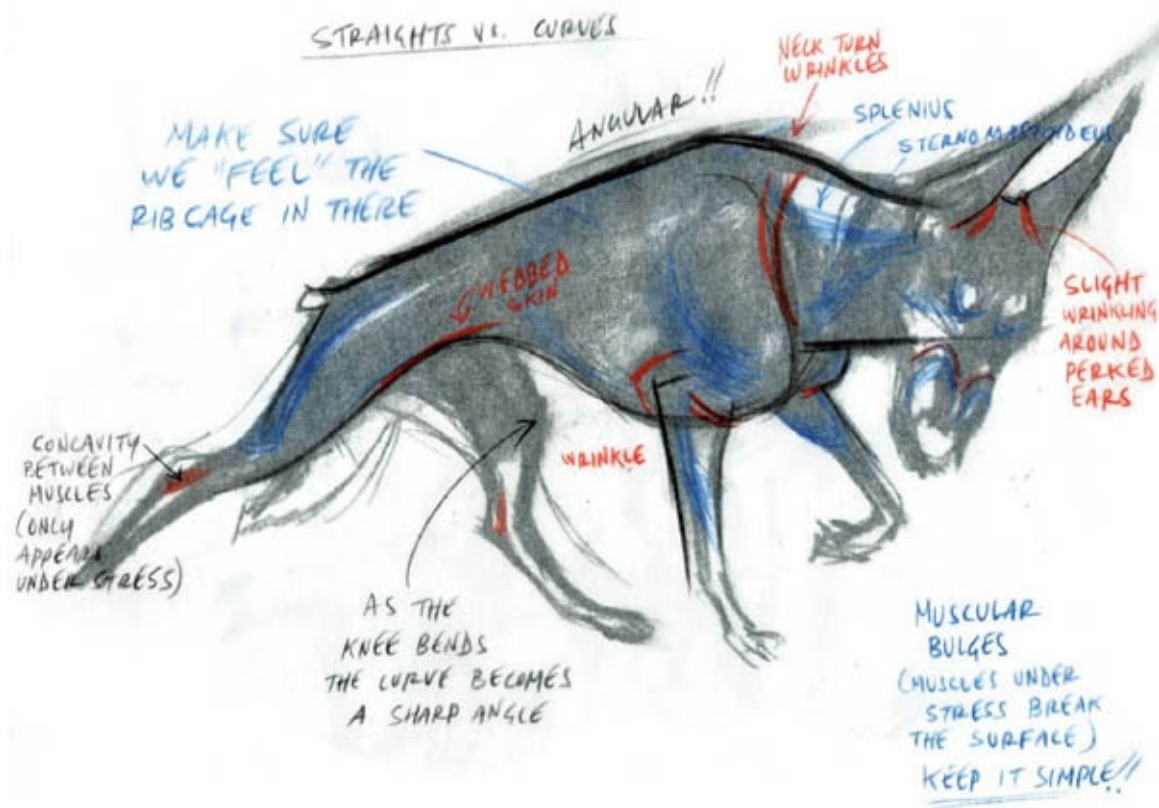 STRAIGHTS VS. CURVES
NECK TURN
WRINKLES
ANGULAR!!
SPLENIUS
STERNOMASTOYDEUS
MAKE SURE
WE "FEEL" THE
RIB CAGE IN THERE
WEBBED
SKIN
SLIGHT
WRINKLING
AROUND
PERKED
EARS
CONCAVITY
BETWEEN
MUSCLES
(ONLY
APPEARS
UNDER STRESS)
WRINKLE
AS THE
KNEE BENDS
THE CURVE BECOMES
A SHARP ANGLE
MUSCULAR
BULGES
(MUSCLES UNDER
STRESS BREAK
THE SURFACE)
KEEP IT SIMPLE!!